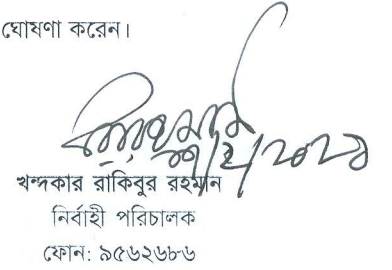 ঘোষণা করেন।
খন্দকার রাকিবুর রহমান
নির্বাহী পরিচালক
ফোন: ৯৫৬২৬৮৬